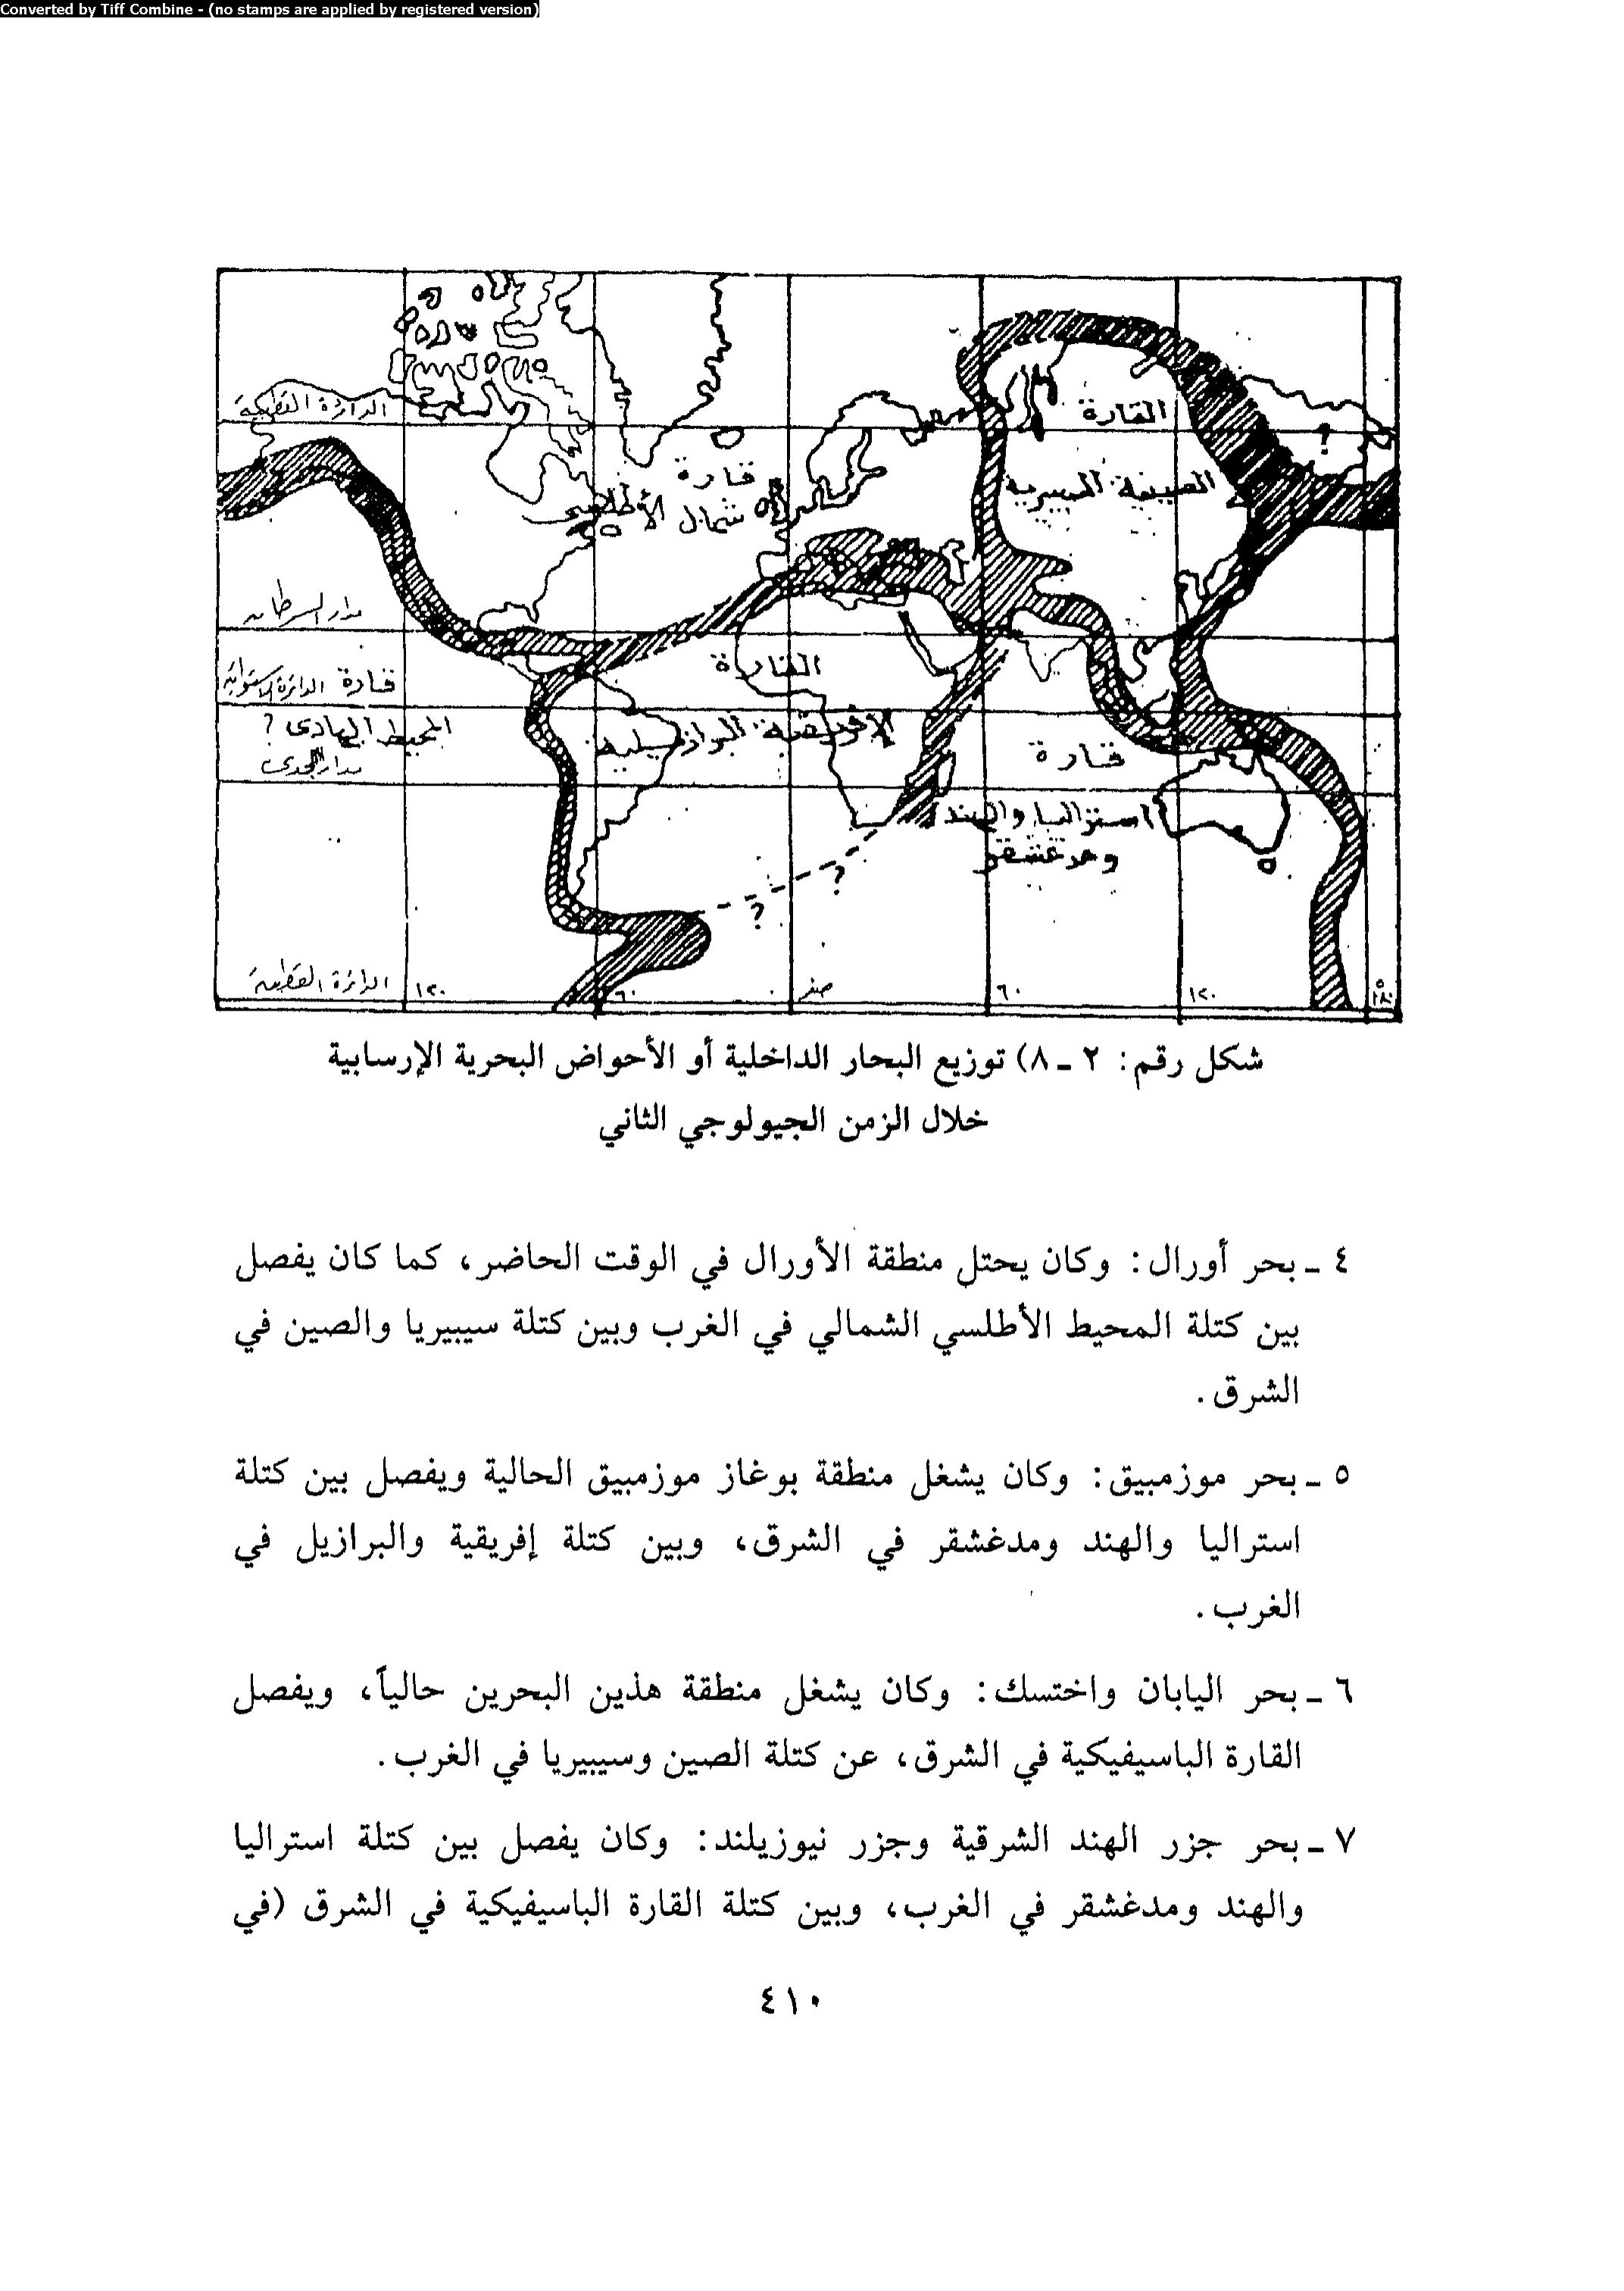 Converted by Tiff Combine - (no stamps are applied by registered version)
الدائرة القطبية
القارة
؟
قارة
الصينية السيبيرية
شمال الأطلسى
مدار السرطان
القارة
قارة الدائرة الاستوائية
الإفريقية البرازيلية
المحيط الهادى ؟
قارة
مدار الجدى
استراليا والهند
ومدغشقر
؟
؟
الدائرة القطبية
١٢٠
٦٠
صفر
٦٠
١٢٠
١٨٠
شكل رقم: ٢ ـ ٨) توزيع البحار الداخلية أو الأحواض البحرية الإرسابية
خلال الزمن الجيولوجي الثاني
٤ ـ بحر أورال: وكان يحتل منطقة الأورال في الوقت الحاضر، كما كان يفصل
بين كتلة المحيط الأطلسي الشمالي في الغرب وبين كتلة سيبيريا والصين في
الشرق.
٥ ـ بحر موزمبيق: وكان يشغل منطقة بوغاز موزمبيق الحالية ويفصل بين كتلة
استراليا والهند ومدغشقر في الشرق، وبين كتلة إفريقية والبرازيل في
الغرب.
٦ ـ بحر اليابان واختسك: وكان يشغل منطقة هذين البحرين حالياً، ويفصل
القارة الباسيفيكية في الشرق، عن كتلة الصين وسيبيريا في الغرب.
٧ ـ بحر جزر الهند الشرقية وجزر نيوزيلند: وكان يفصل بين كتلة استراليا
والهند ومدغشقر في الغرب، وبين كتلة القارة الباسيفيكية في الشرق (في
٤١٠